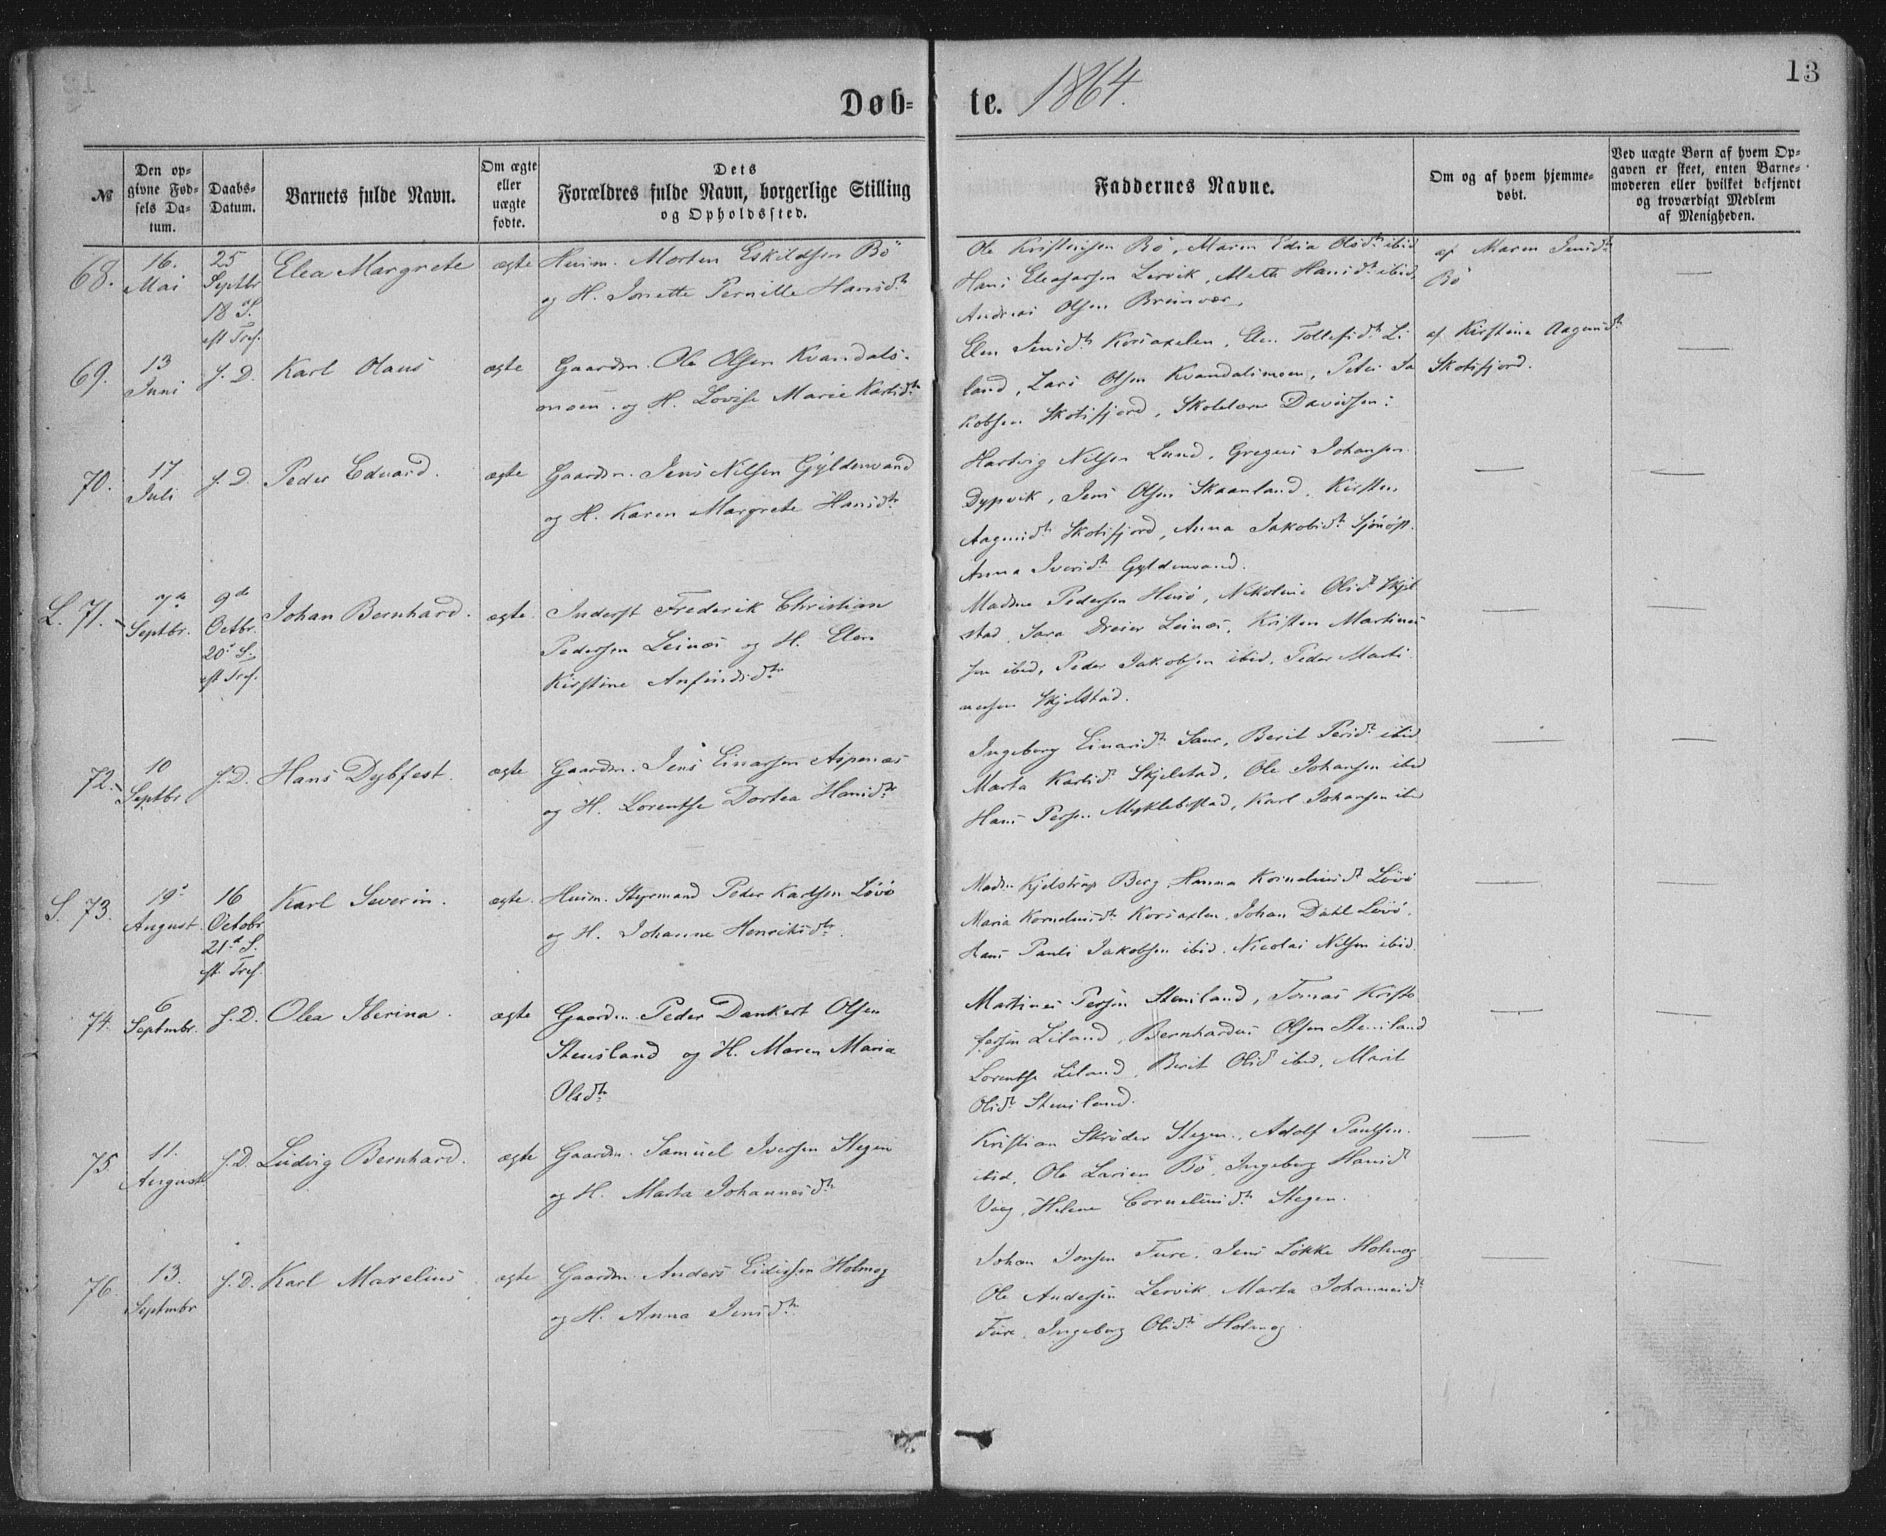 13
Døb-te. 1864.
№
Den opgivne Fødsels Datum.
Daabs-Datum.
Barnets fulde Navn.
Om ægte eller uægte fødte.
Dets Forældres fulde Navn, borgerlige Stilling og Opholdssted.
Faddernes Navne.
Om og af hvem hjemmedøbt.
Ved uægte Børn af hvem Opgaven er skeet, enten Barnemoderen eller hvilket bekjendt og troværdigt Medlem af Menigheden.
68. 16. Mai
25 Septbr 18 S. eft Tref.
Elea Margrete
ægte
Huusm. Morten Eskildsen Bö
og H. Jonette Pernille Hansdtr
Ole Kristensen Bö, Maren Edia Olsdtr ibid
Hans Eleasarsen Lervik, Mette Hansdtr ibid
Andreas Olsen Brennvær.
af Maren Jensdtr
Bö
69. 13 Juni
s. D.
Karl Olaus
ægte
Gaardm. Ole Olsen Kvandals-
moen. og H. Lovise Marie Karlsdtr
Elen Jensdtr Korsaxelen, Elen Tollefsdtr Li
land, Lars Olsen Kvandalsmoen, Peter Ja
kobsen Skotsfjord, Skolelærer Davidsen:
af Kirstine Aagesdtr
Skotsfjord.
70. 17 Juli
s. D.
Peder Edvard.
ægte
Gaardm. Jens Nilsen Gyldenvand
og H. Karen Margrete Hansdtr
Hartvig Nilsen Lund, Gregus Johansen
Dypvik, Jens Olsen Skaanland, Kirsten
Skotsfjord, Anna Jakobsdtr
Anna Iversdtr Gyldenvand.
L. 71. 7de Septbr.
9de Octbr. 20s S. eft Tref.
Johan Bernhard.
ægte.
Inderst Frederik Christian
Pedersen Leines og H. Elen
Kirstine Anfindsdtr
Madme Pedersen Husö, Nikoline Olsdtr Skjel
stad, Sara Dreier Leines, Kristen Martines
sen ibid, Peder Jakobsen ibid, Peder Marti
nessen Skjelstad.
72. 10 Septbr
s. D.
Hans Dybfest.
ægte
Gaardm. Jens Einarsen Aspenæs
og H. Lorentse Dortea Hansdtr
Ingeborg Einarsdtr Saur, Berit Persdtr ibid
Marta Karlsdtr Skjelstad, Ole Johansen ibid
Hans Persen Myklebostad, Karl Johansen ibid
S. 73. 19s August.
16 Octobr 21de S. eft. Tref.
Karl Severin.
ægte.
Huusm. Styrmand Peder Karlsen Lövö
og H. Johanne Henriksdtr.
Madm Kjelstrup Berg, Hanna Korneliusdtr Lövö
Maria Korneliusdtr Korsaxlen, Johan Dahl Lövö.
Hans Pauls Jakobsen ibid. Nicolai Nilsen ibid.
74. 6 Septmbr.
s. D.
Olea Iberina.
ægte
Gaardm. Peder Dankert Olsen
Stensland og H. Maren Maria
Olsdtr
Martines Persen Stensland, Tomas Kristo
fersen Liland, Bernhardus Olsen Stensland
Lorentse Liland, Berit Olsd ibid, Marit
Olsdtr Stensland.
75. 11. August
s. D.
Ludvig Bernhard.
ægte
Gaardm. Samuel Iversen Stegen
og H. Marta Johannesdtr
Kristian Skröder Stegen, Adolf Paulsen
ibid, Ole Larsen Bö, Ingeborg Hansdtr
Vaag, Helene Corneliusdtr Stegen.
76. 13. Septmbr
s. D.
Karl Marelius.
ægte
Gaardm. Anders Eidissen Holmog
og H. Anna Jensdtr
Johan Jonsen Fure, Jens Lökke Holmog
Ole Andersen Lervik, Marta Johannesdtr
Fure, Ingeborg Olsdtr Holmog.